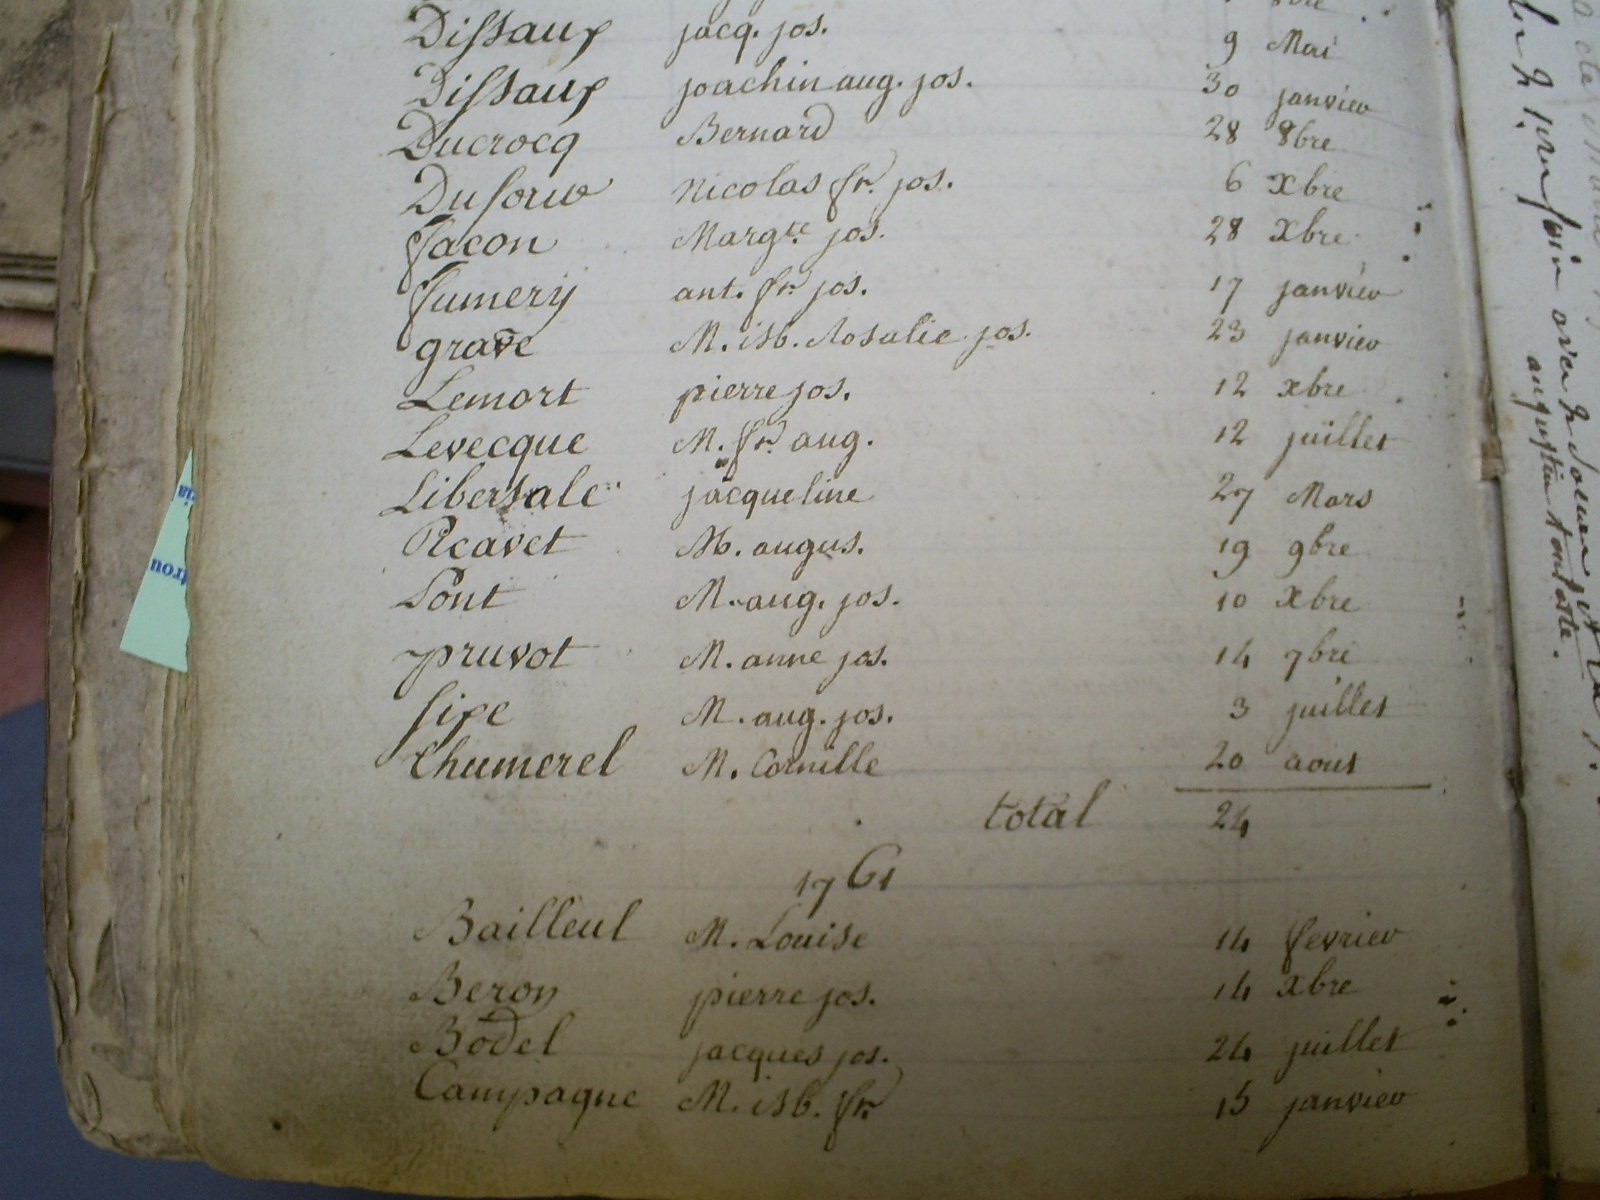 Dissaux jacq. jos. 9 Mai
Dissaux joachin aug. jos. 30 janvier
Ducrocq Bernard 28 8bre
Dufour nicolas fr. jos. 6 xbre
facon Margte jos. 28 xbre
fumery ant. fr. jos. 17 janvier
grave M. isb. Rosalie jos. 23 janvier
Lemort pierre jos. 12 xbre
Levecque M. fr. aug. 12 juillet
Libersale jacqueline 27 Mars
Picavet M. augus. 19 9bre
Pont M. aug. jos. 10 xbre
pruvot M. anne jos. 14 7bre
sixe M. aug. jos. 3 juillet
Thumerel M. Cornille 20 aout
total 24
1761
Bailleul M. Louise 14 fevrier
Beron pierre jos. 14 xbre
Bodel jacques jos. 24 juillet
Campagne M. isb. fr. 15 janvier